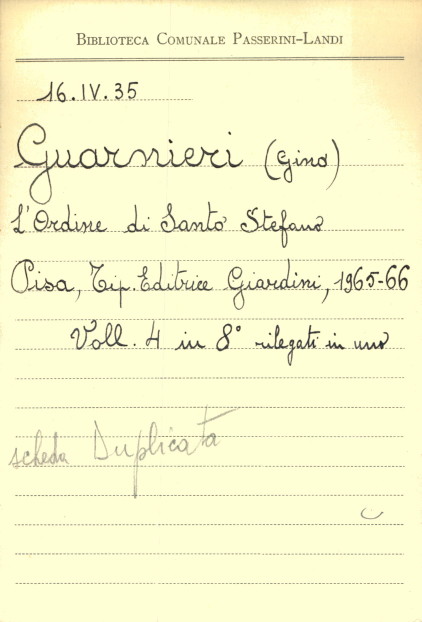 BIBLIOTECA COMUNALE PASSERINI-LANDI
16.IV.35
Guarnieri (Gino)
L'Ordine di Santo Stefano
Pisa, Tip. Editrice Giardini, 1965-66
Voll. 4 in 8° rilegati in uno
scheda Duplicata